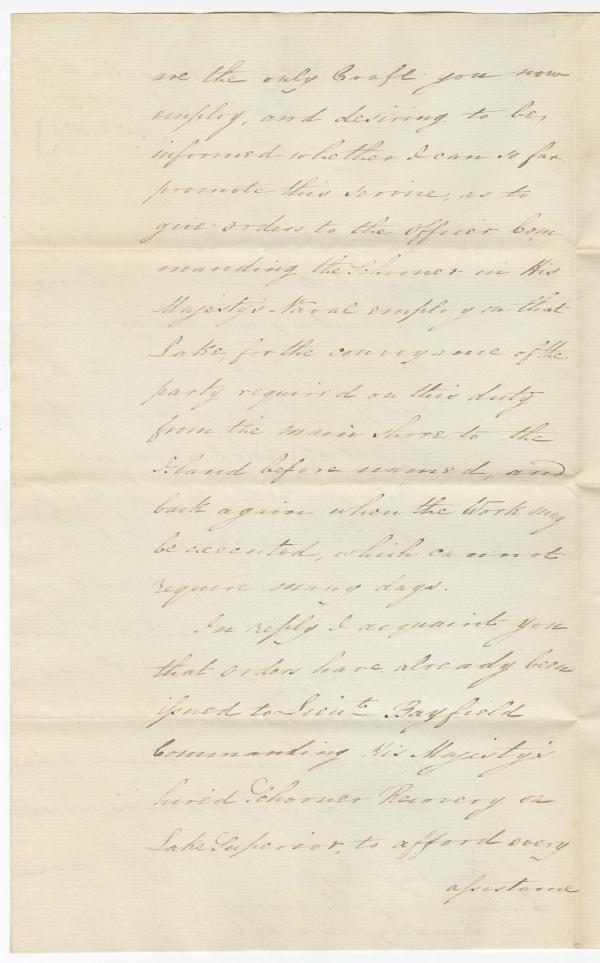 are the only Craft you now
employ, and desiring to be,
informed whether I can so far
promote this service, as to
give orders to the Officer Com
manding the Schooner in His
Majesty's Naval employ on that
Lake, for the conveyance of the
party required on this duty
from the main shore to the
Island before named, and
back again when the Work may
be executed, which cannot
require many days.
In reply I acquaint you
that orders have already been
issued to Lieut. Bayfield
Commanding His Majesty's
hired Schooner Recovery on
Lake Superior, to afford every
assistance